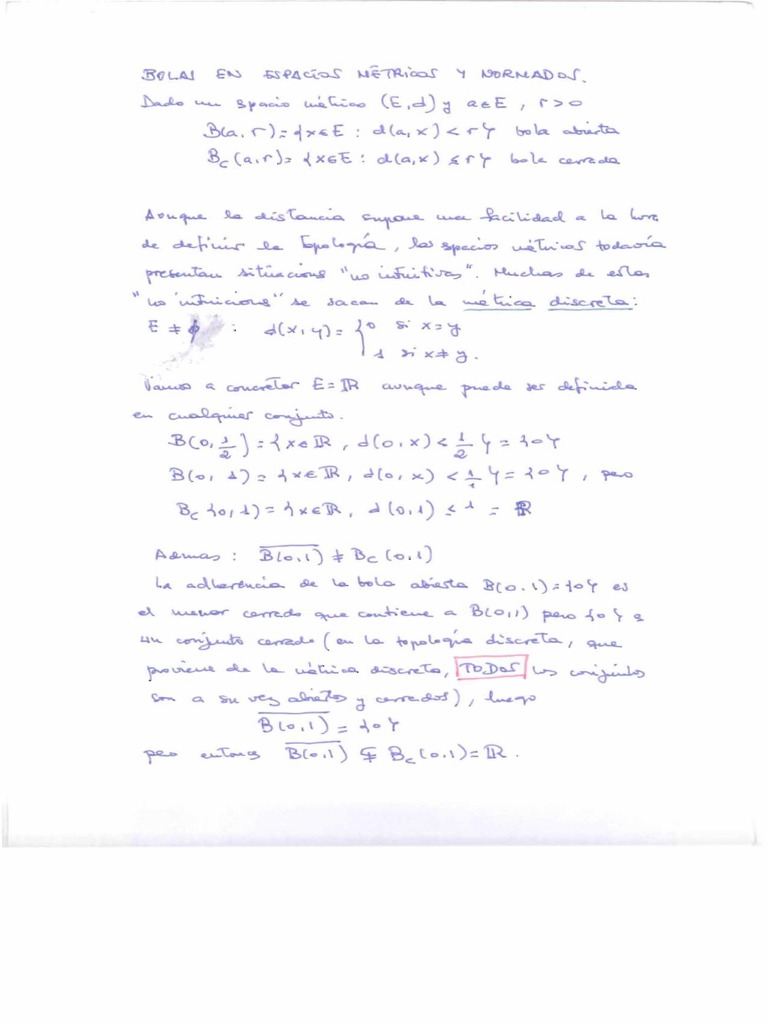 BOLAS EN ESPACIOS MÉTRICOS Y NORMADOS.
Dado un espacio métrico (E,d) y a∈E, r>0
B(a,r)={x∈E : d(a,x)<r} bola abierta
B_c(a,r)={x∈E : d(a,x)≤r} bola cerrada
Aunque la distancia supone una facilidad a la hora
de definir la Topología, los espacios métricos todavía
presentan situaciones "no intuitivas". Muchas de estas
"no intuiciones" se sacan de la métrica discreta:
E ≠ ∅ : d(x,y)={0 si x=y
1 si x≠y.
Vamos a concretar E=ℝ aunque puede ser definida
en cualquier conjunto.
B(0,1/2)={x∈ℝ, d(0,x)<1/2}={0}
B(0,1)={x∈ℝ, d(0,x)<1/1}={0}, pero
B_c{0,1)={x∈ℝ, d(0,1)≤1 = ℝ
Ademas : \overline{B(0,1)} ≠ B_c(0,1)
La adherencia de la bola abierta B(0,1)={0} es
el menor cerrado que contiene a B(0,1) pero {0} es
un conjunto cerrado (en la topología discreta, que
proviene de la métrica discreta, TODOS los conjuntos
son a su vez abiertos y cerrados), luego
\overline{B(0,1)} = {0}
pero entonces \overline{B(0,1)} ⊊ B_c(0,1)=ℝ.